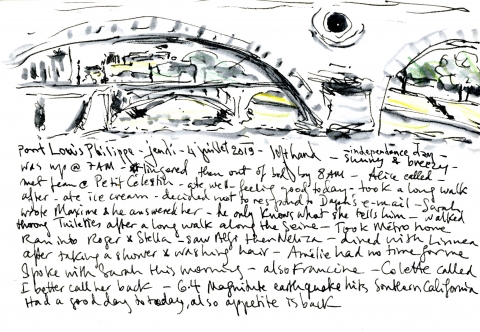 Pont Louis Philippe - jeudi - 4 juillet 2019 - left hand - independence day - sunny & breezy -
was up @ 7AM lingered then out of bed by 8AM - Alice called -
met Jean @ Petit Célestin - ate well - feeling good today - took a long walk
after - ate ice cream - decided not to respond to Daph's e-mail - Sarah
wrote Maxime & he answered her - he only knows what she tells him - walked
through Tuileries after a long walk along the Seine - Took Métro home
Ran into Roger & Stella - saw Alfs then - dined with Linnea
after taking a shower & washing hair - Amélie had no time for me
Spoke with Sarah this morning - also Francine - Colette called
I better call her back - 6.4 Magnitude earthquake hits Southern California
Had a good day today, also appetite is back